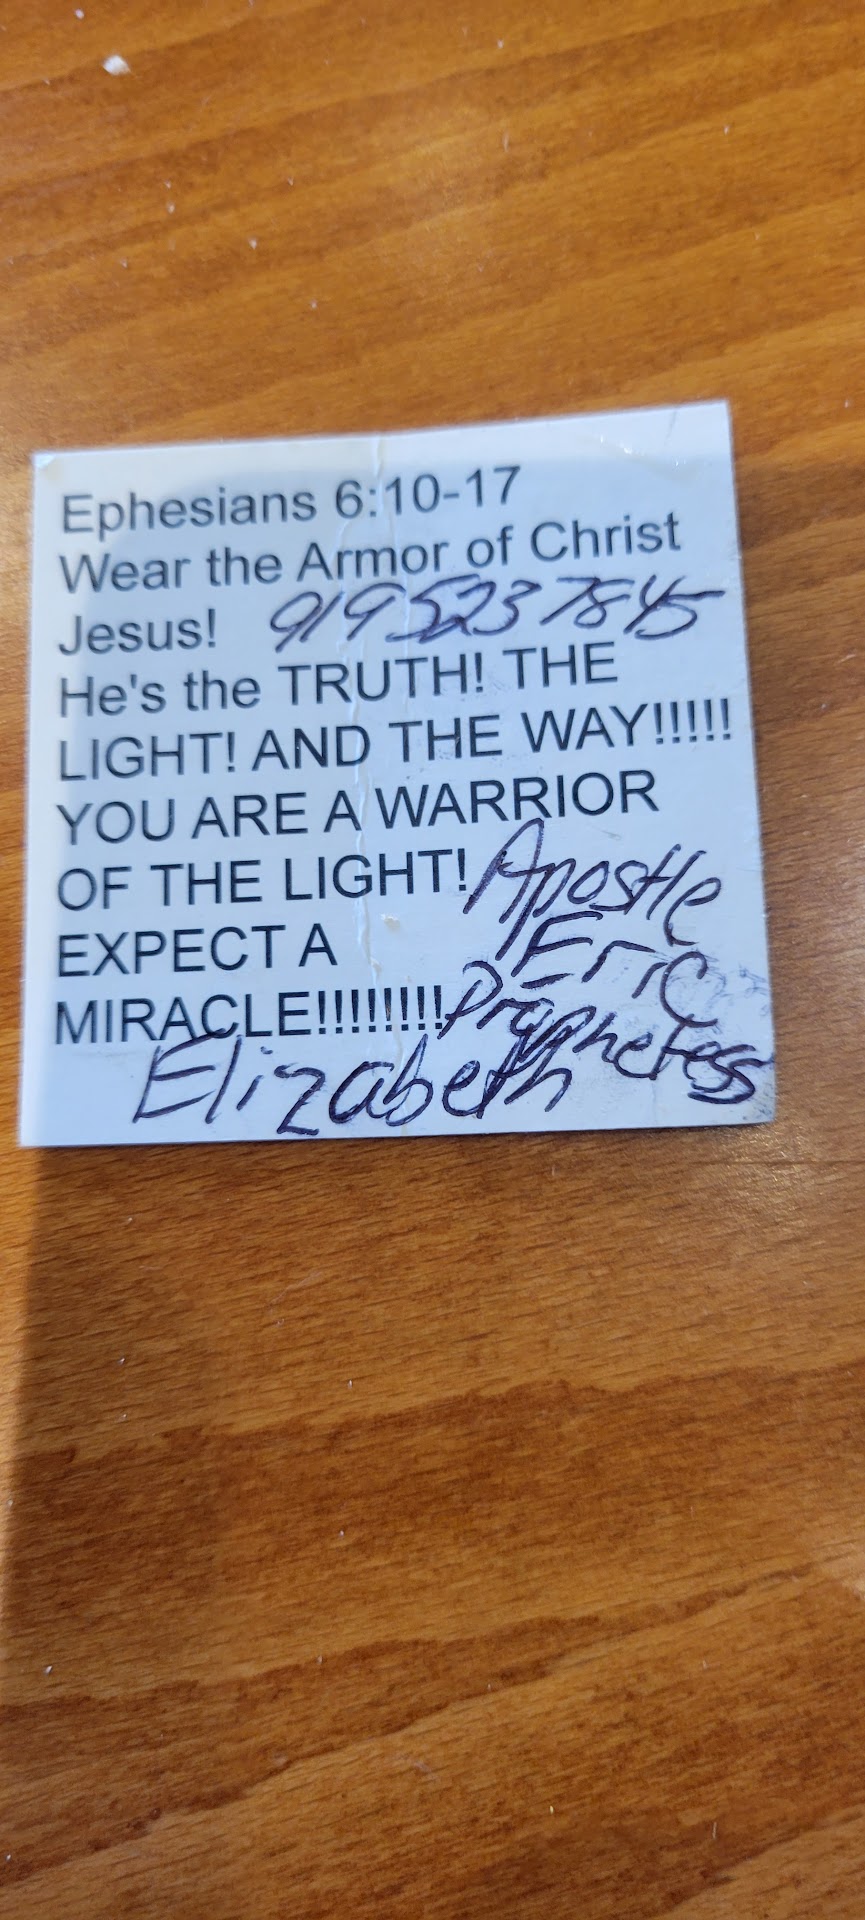 Ephesians 6:10-17
Wear the Armor of Christ
Jesus! 919 523 7845
He's the TRUTH! THE
LIGHT! AND THE WAY!!!!!
YOU ARE A WARRIOR
OF THE LIGHT! Apostle
EXPECT A Eric
MIRACLE!!!!!!!! Prophetess
Elizabeth